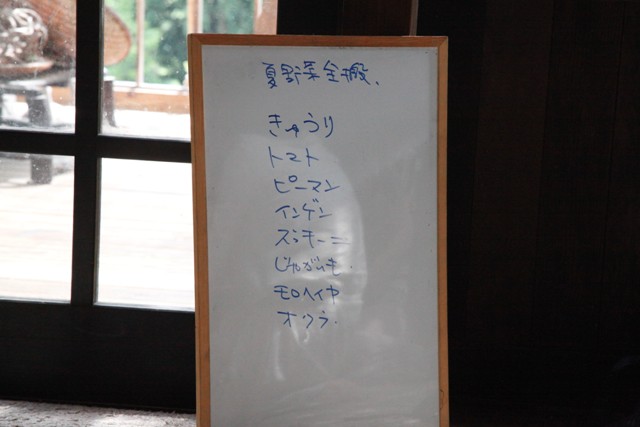 夏野菜全搬、
きゅうり
トマト
ピーマン
インゲン
ズッキーニ
じゃがいも.
モロヘイヤ
オクラ.